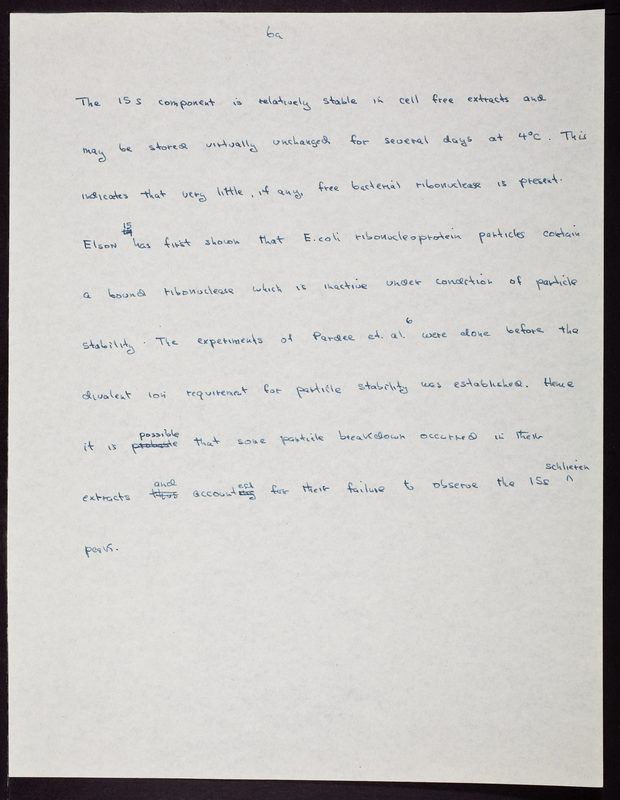 6a
The 15s component is relatively stable in cell free extracts and
may be stored virtually unchanged for several days at 4°C. This
indicates that very little, if any, free bacterial ribonuclease is present.
Elson 15 has first shown that E.coli ribonucleoprotein particles contain
a bound ribonuclease which is inactive under condition of particle
stability. The experiments of Pardee et. al. 6 were done before the
divalent ion requirement for particle stability was established. Hence
it is probable possible that some particle breakdown occurred in their
extracts thus and accounting ed for their failure to observe the 15s schlieren
peak.